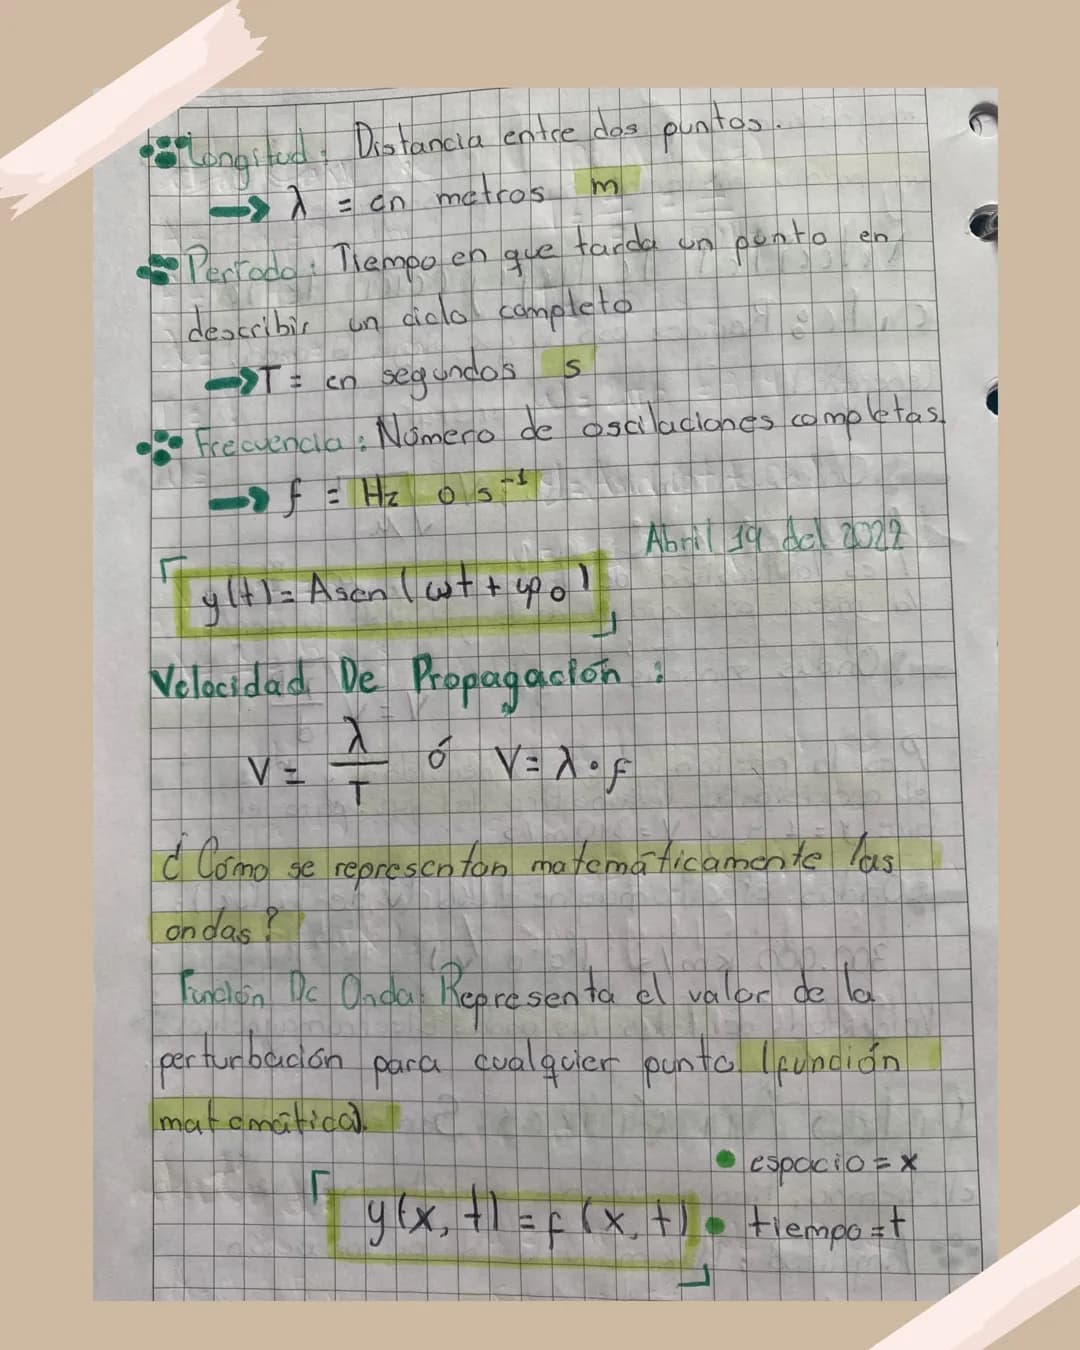 Longitud: Distancia entre dos puntos.
→ λ = en metros m
Período: Tiempo en que tarda un punto en
describir un ciclo completo
→ T = en segundos s
Frecuencia: Número de oscilaciones completas.
→ f = Hz o s⁻¹
Abril 19 del 2022
y(t) = Asen (ωt + φ₀)
Velocidad De Propagación:
V = λ/T ó V = λ • f
¿Cómo se representan matemáticamente las
ondas?
Función De Onda: Representa el valor de la
perturbación para cualquier punto (función
matemática).
• espacio = x
y(x, t) = f (x, t) • tiempo = t